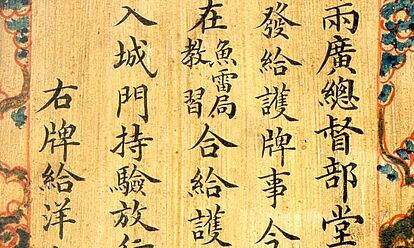 兩廣總督部堂
發給護牌事今
在魚雷局教習合給護
入城門持驗放行
右牌給洋